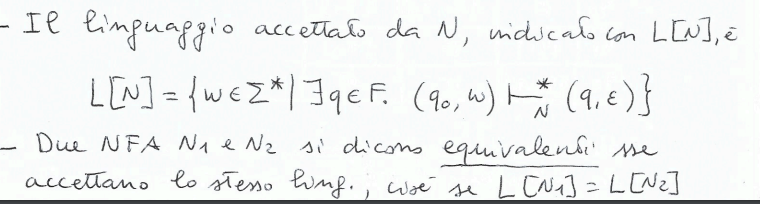 - Il linguaggio accettato da N, indicato con L[N], è
L[N] = {w ∈ Σ* | ∃q ∈ F. (q₀, w) ⊢*_N (q, ε)}
- Due NFA N₁ e N₂ si dicono equivalenti sse
accettano lo stesso ling., cioè se L[N₁] = L[N₂]